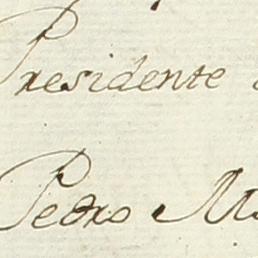 Presidente
Pedro